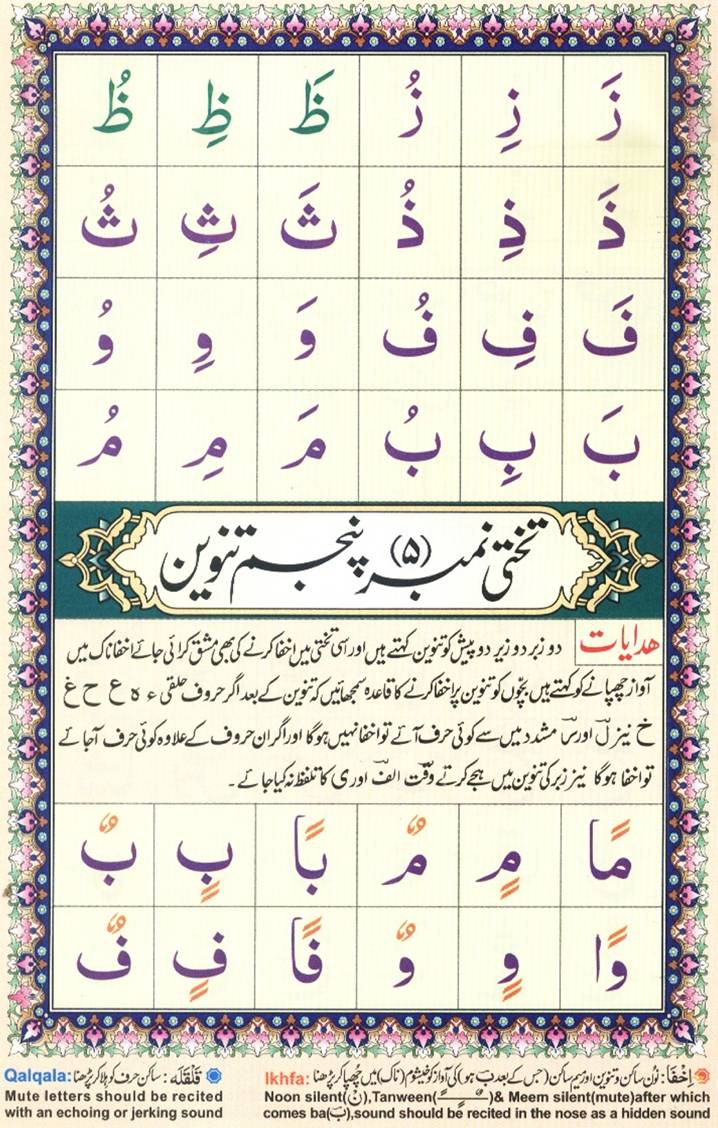 زَ زِ زُ ظَ ظِ ظُ
ذَ ذِ ذُ ثَ ثِ ثُ
فَ فِ فُ وَ وِ وُ
بَ بِ بُ مَ مِ مُ
تختی نمبر (۵) پنجم تنوین
ھدایات دو زبر دو زیر دو پیش کو تنوین کہتے ہیں اور اسی تختی میں اخفا کرنے کی بھی مشق کرائی جائے اخفا ناک میں
آواز چھپانے کو کہتے ہیں بچوں کو تنوین پر اخفا کرنے کا قاعدہ سمجھائیں کہ تنوین کے بعد اگر حروف حلقی ء ہ ع ح غ
خ نیز ل اور ر مشدد میں سے کوئی حرف آئے تو اخفا نہیں ہوگا اور اگر ان حروف کے علاوہ کوئی حرف آجائے
تو اخفا ہوگا نیز زبر کی تنوین میں ہجے کرتے وقت الف اور ی کا تلفظ نہ کیا جائے ۔
مًا مٍ مٌ بًا بٍ بٌ
وًا وٍ وٌ فًا فٍ فٌ
اِخْفَا : نون ساکن و تنوین اور میم ساکن (جس کے بعد ب ہو) کی آواز کو خیشوم (ناک) میں چھپا کر پڑھنا Ikhfa:
Noon silent(نْ),Tanween(ـًـٍـٌ)& Meem silent(mute)after which
comes ba(بَ),sound should be recited in the nose as a hidden sound
قَلْقَلَه : ساکن حرف کو ہلا کر پڑھنا Qalqala:
Mute letters should be recited
with an echoing or jerking sound